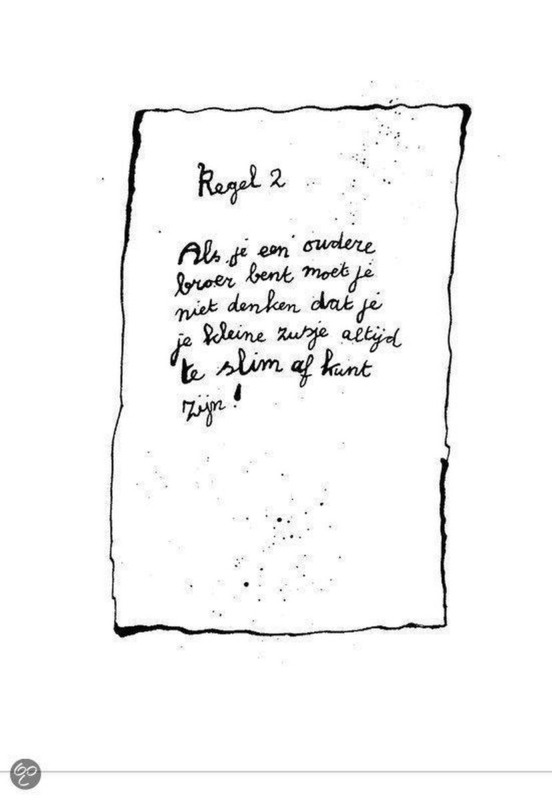 Regel 2
Als je een oudere
broer bent moet je
niet denken dat je
je kleine zusje altijd
te slim af kunt
zijn!